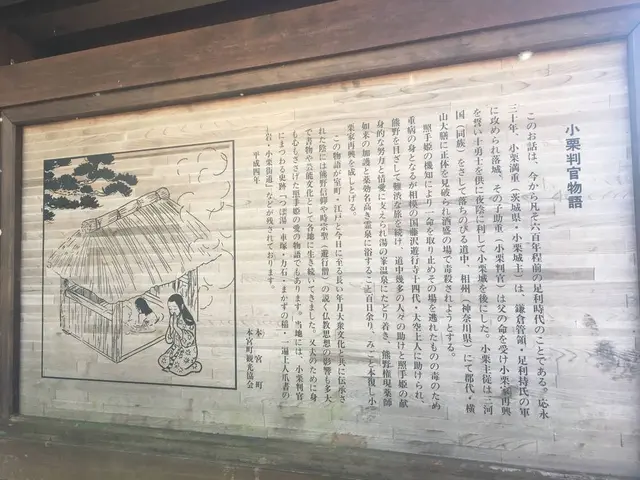 小栗判官物語
このお話は、今から凡そ六百年程前の足利時代のことである。応永
三十年、小栗満重（茨城県・小栗城主）は、鎌倉管領・足利持氏の軍
に攻められ落城、その子助重（小栗判官）は父の命を受け小栗家再興
を誓い十勇士を供に夜陰に利して小栗城を後にした。小栗主従は三河
国（同族）をさして落ちのびる道中、相州（神奈川県）にて郡代・横
山大膳に正体を見破られ酒盛の場で毒殺されようとする。
照手姫の機知により一命を取り止めその場を逃れたものの毒のため
重病の身となるが相模の国藤沢遊行寺十四代・大空上人に助けられ、
熊野を目ざして難渋な旅を続け、道中幾多の人々の助けと照手姫の献
身的な努力と情愛に支えられ湯の峯温泉にたどり着き、熊野権現薬師
如来の加護と薬効名高き霊泉に浴すること百日余り、みごと本復し小
栗家再興を成しとげる。
この物語が室町・江戸と今日に至る長い年月大衆文化と共に伝承さ
れた陰には熊野信仰や時宗聖（遊行僧）の説く仏教思想の影響も多大
で書物や芸能文化として各地に生き続いてきました。又夫のために身
も心もささげた照手姫の愛の物語でもあります。当地には、小栗判官
にまつわる史跡「つぼ湯・車塚・力石・まかずの稲・一遍上人爪書の
岩・小栗街道」などが残されております。
平成四年
本宮町
本宮町観光協会